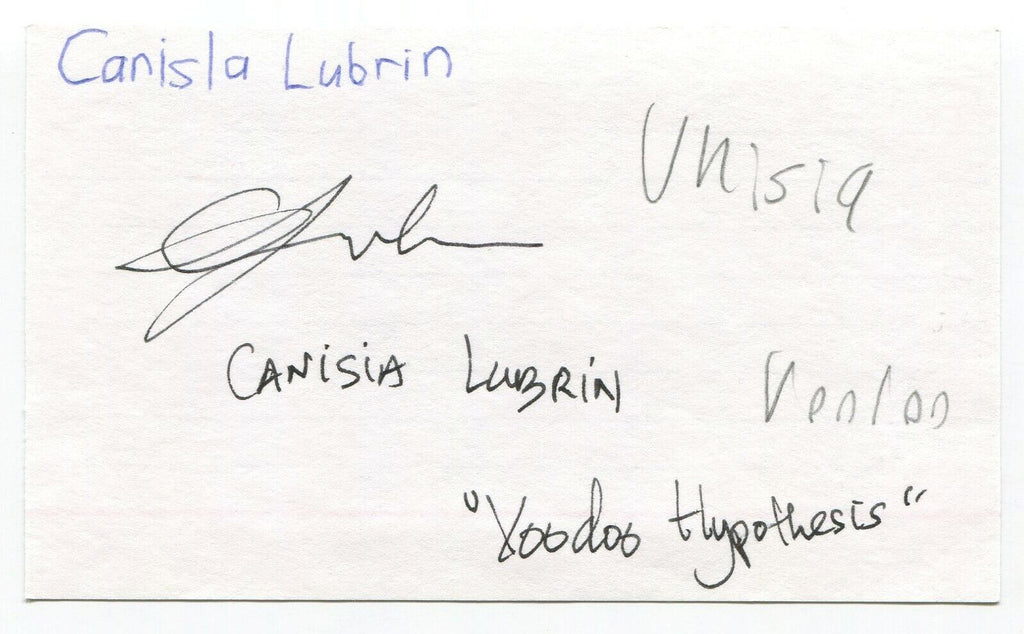 Canisla Lubrin
Unisia
CANISIA LUBRIN
"Voodoo Hypothesis"